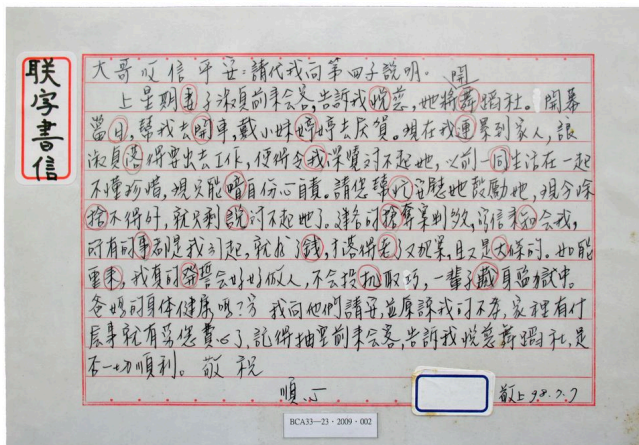 联字書信
大哥收信平安:請代我向第四子說明。開
上星期妻子淑貞前來会客,告訴我悅慈,她將舞蹈社。開幕
當日,幫我去開車,戴小妹婷婷去庆賀。現在我連累到家人,讓
淑貞落得要出去工作,使得令我深覺对不起她,以前一同生活在一起
不懂珍惜,現只能暗自份心自責。請您幫忙安慰她鼓勵她,現今除
捨不得外,就只剩說对不起她了。搶奪案判多,写信來和会我,
所有的事都是我引起,就為了錢,落得老了又犯案,且又是大條的。如能
重来,我真的榮譽会好好做人,不会投机取巧,一輩子戴身监獄中。
爸媽的身体健康嗎?我向他們請安並原諒我的不孝,家裡有什
麼事就有勞您費心了,記得抽空前來会客,告訴我悅慈舞蹈社,是
否一切順利。敬祝
順心
敬上98.7.7
BCA33—23·2009·002